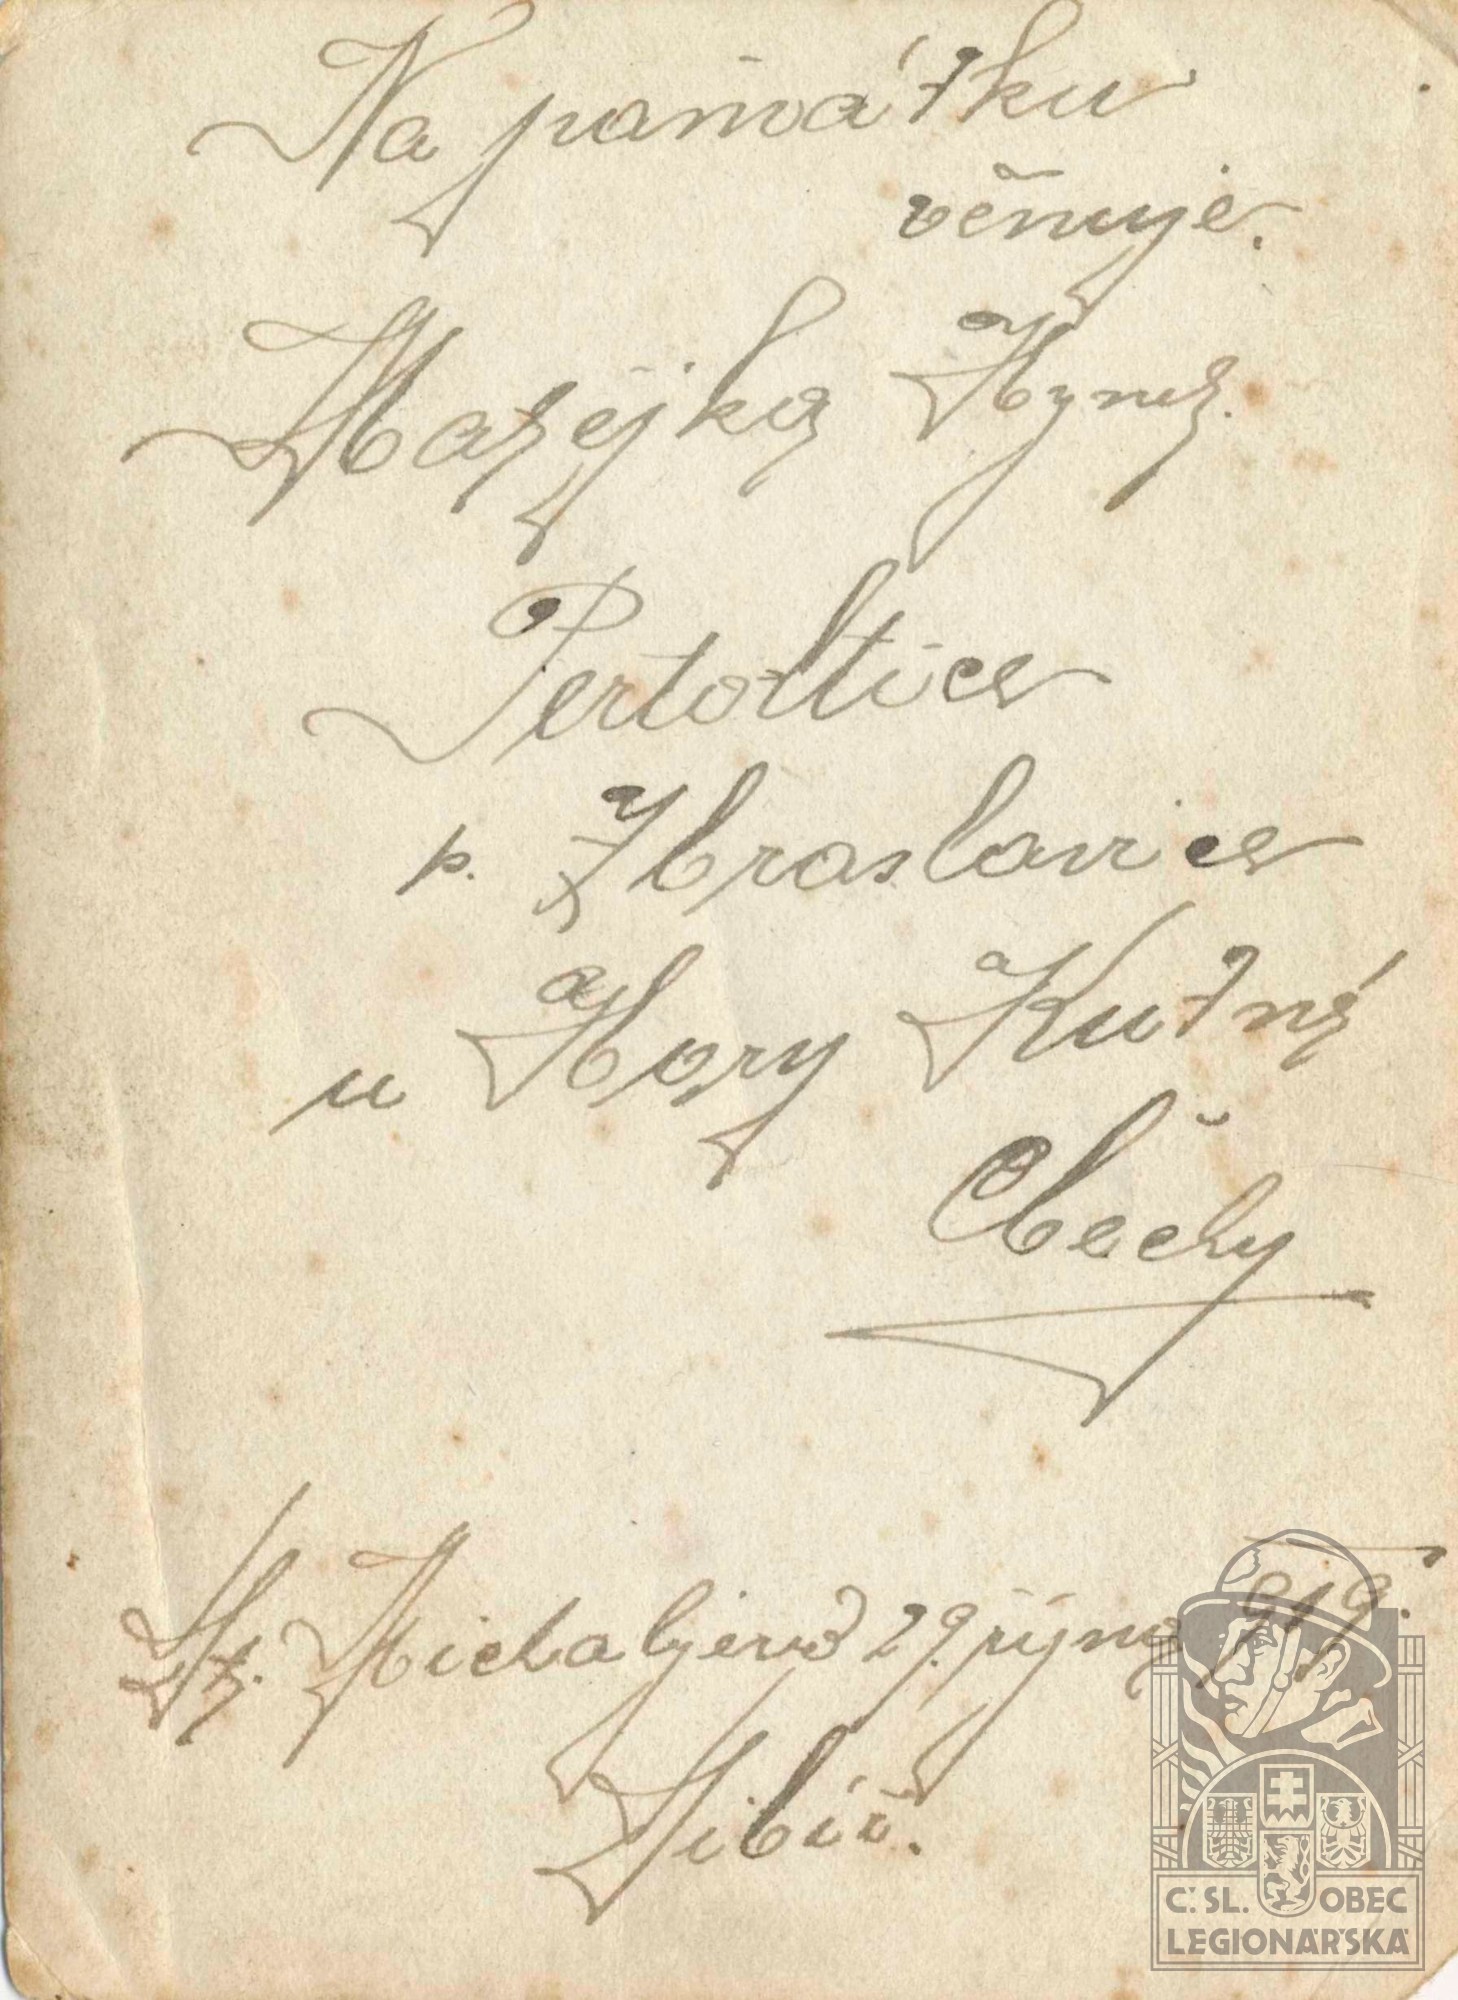 Na památku
věnuje.
Matějka Hynek.
Pertoltice
p. Zbraslavice
u Hory Kutné
Čechy
St. Michaljevo 29. října 919.
Sibiř.
Č. SL. OBEC
LEGIONÁŘSKÁ